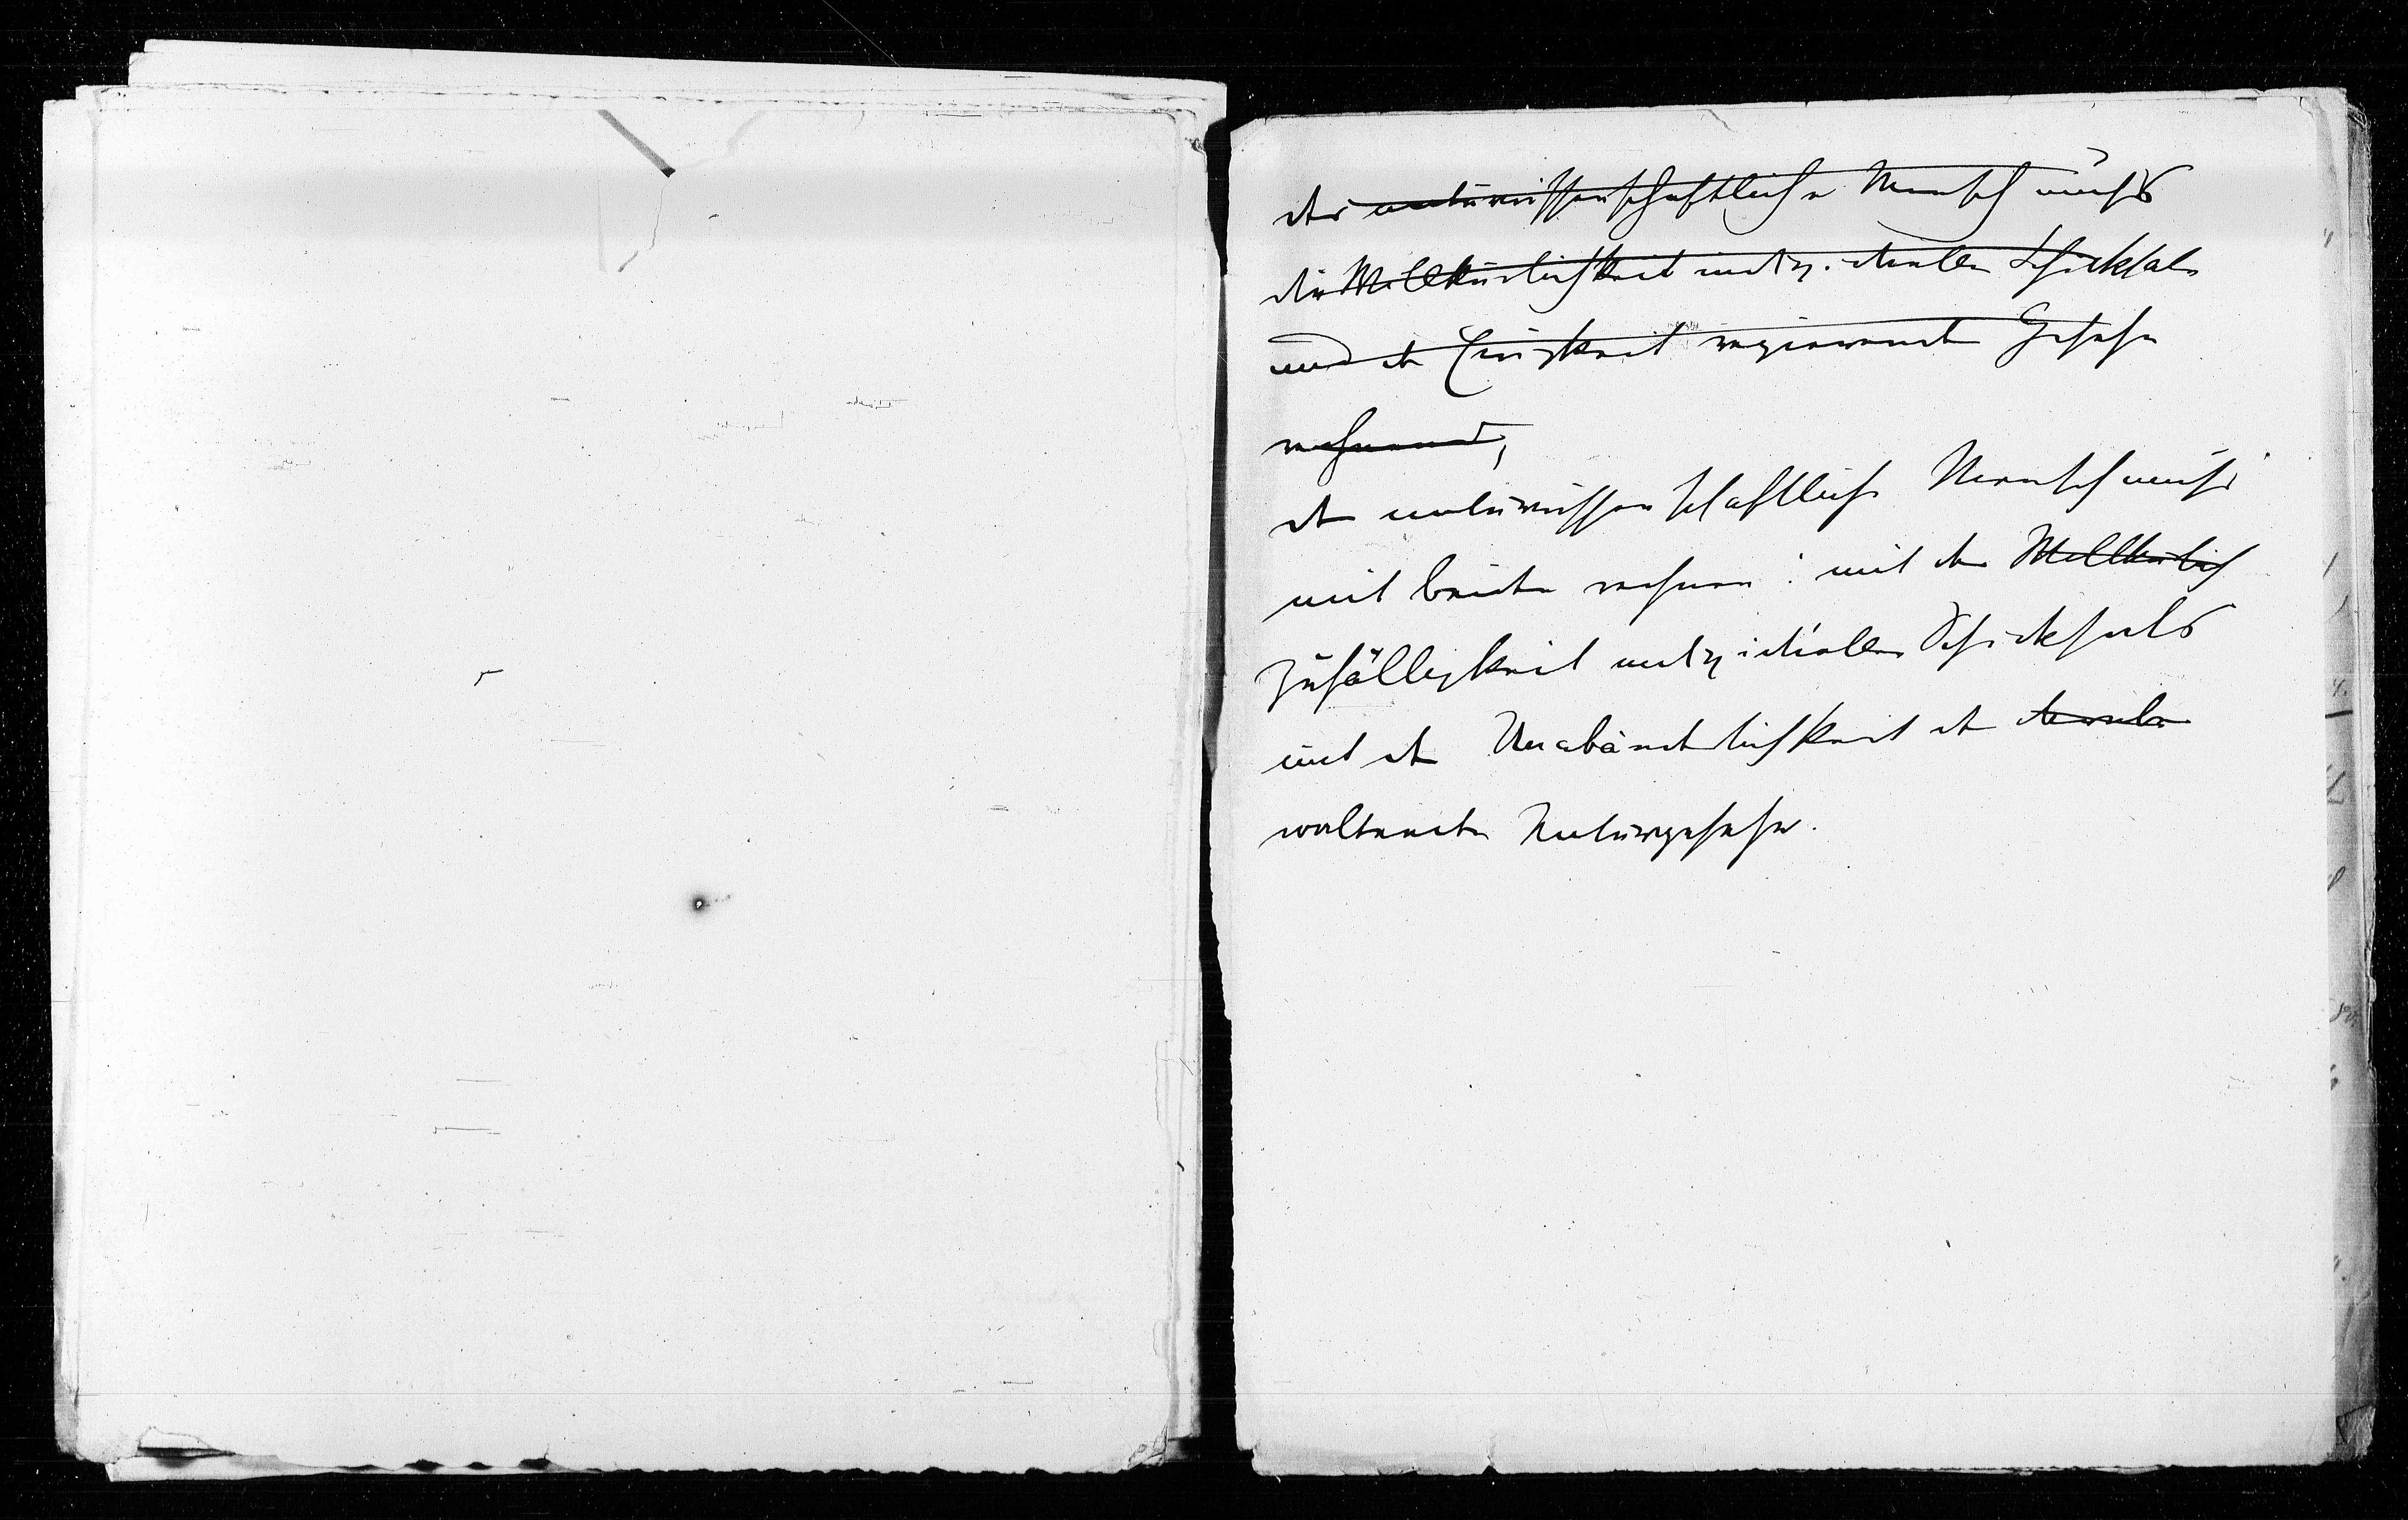 der naturwissenschaftliche Mensch muß
die Willkürlichkeit individuellen Schicksals
und der Ewigkeit regierender Gesetze
rechnend,
der naturwissenschaftliche Mensch muß
mit beiden rechnen: mit der Willkürlich
Zufälligkeit individuellen Schicksals
und der Unabänderlichkeit der
waltenden Naturgesetze.